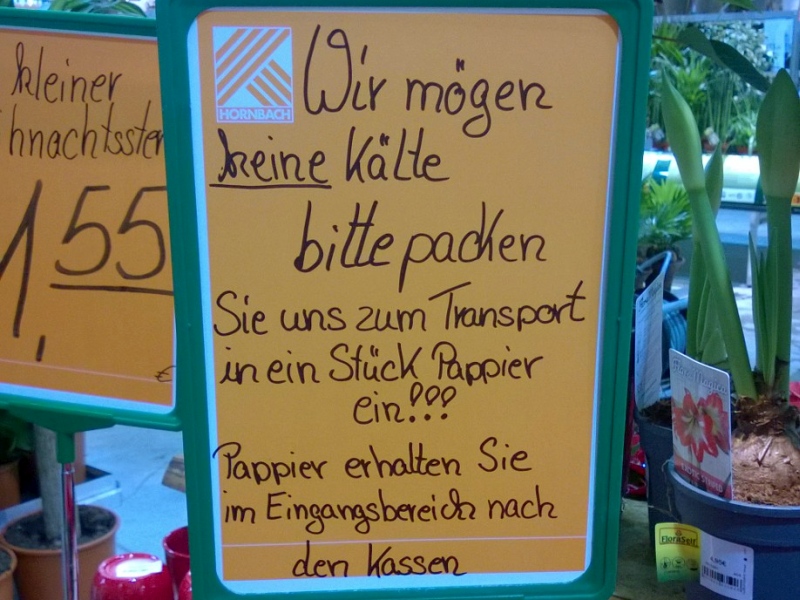 kleiner
hnachtsster
1,55
€
HORNBACH
Wir mögen
keine Kälte
bitte packen
Sie uns zum Transport
in ein Stück Pappier
ein!!!
Pappier erhalten Sie
im Eingangsbereich nach
den Kassen
FloraSelf